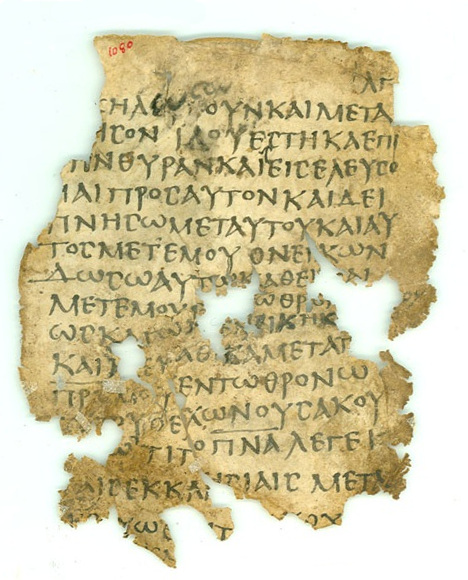 1080
ΟΥΝΚΑΙΜΕΤΑ
ΗϹΟΝ ΙΔΟΥΕϹΤΗΚΑΕΠΙ
ΘΥΡΑΝΚΑΙΕΙϹΕΛΕΥϹΟ
ΑΙΠΡΟϹΑΥΤΟΝΚΑΙΔΕΙ
ΠΝΗϹΩΜΕΤΑΥΤΟΥΚΑΙΑΥ
ΤΟϹΜΕΤΕΜΟΥ ΟΝΕΙΚΩΝ
ΔΩϹΩΑΥΤΩΚΑΘΕΙϹΑΙ
ΜΕΤΕΜΟΥ ΘΡΟ
ΩϹΚΑΓΩ
ΚΑΙ ΑΘΙΚΑΜΕΤΑΤ
ΕΝΤΩΘΡΟΝΩ
ΟΕΧΩΝΟΥϹΑΚΟΥ
ΤΙΤΟΠΝΑΛΕΓΕΙ
ΑΙϹΕΚΚΛΗϹΙΑΙϹ ΜΕΤΑ